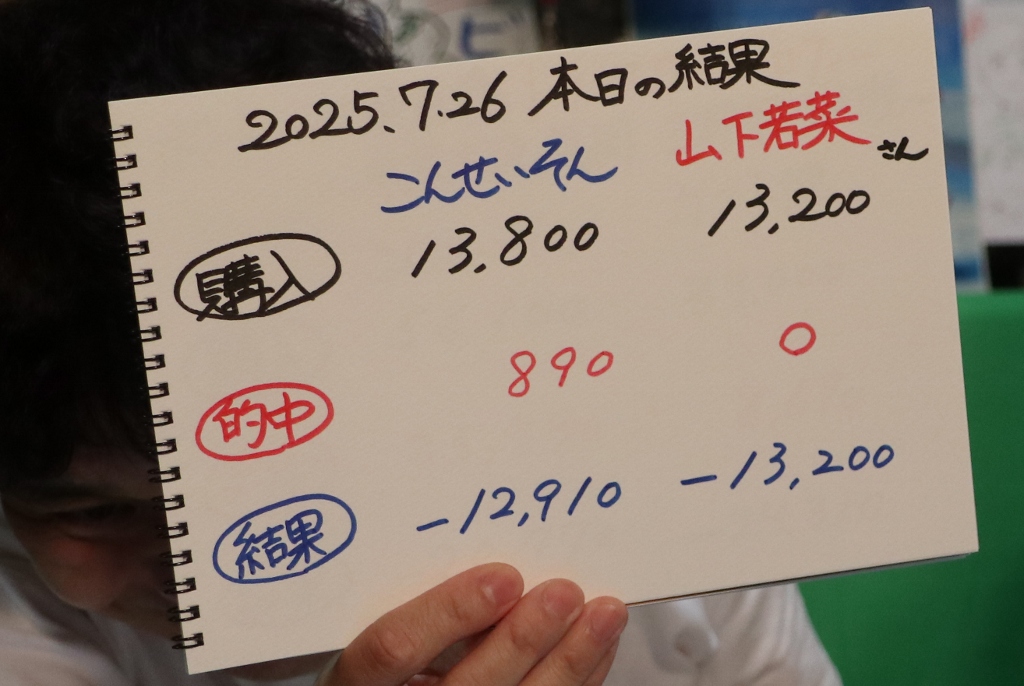 2025.7.26 本日の結果
こんせいそん 山下若菜さん
購入 13,800 13,200
的中 890 0
結果 -12,910 -13,200